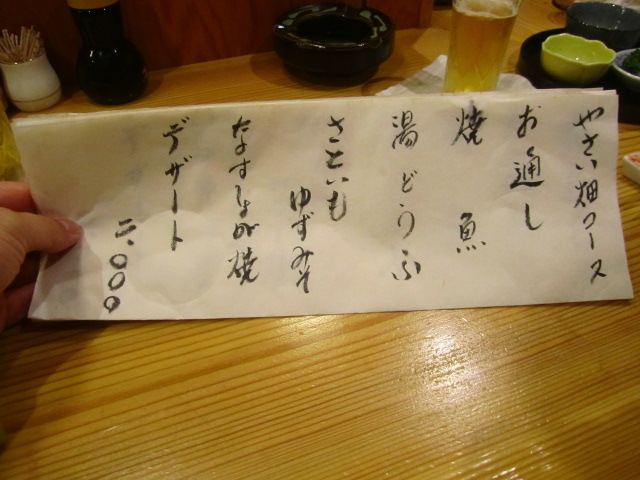 やさい畑コース
お通し
焼魚
湯どうふ
さといも
ゆずみそ
なすしょうが焼
デザート
二、000